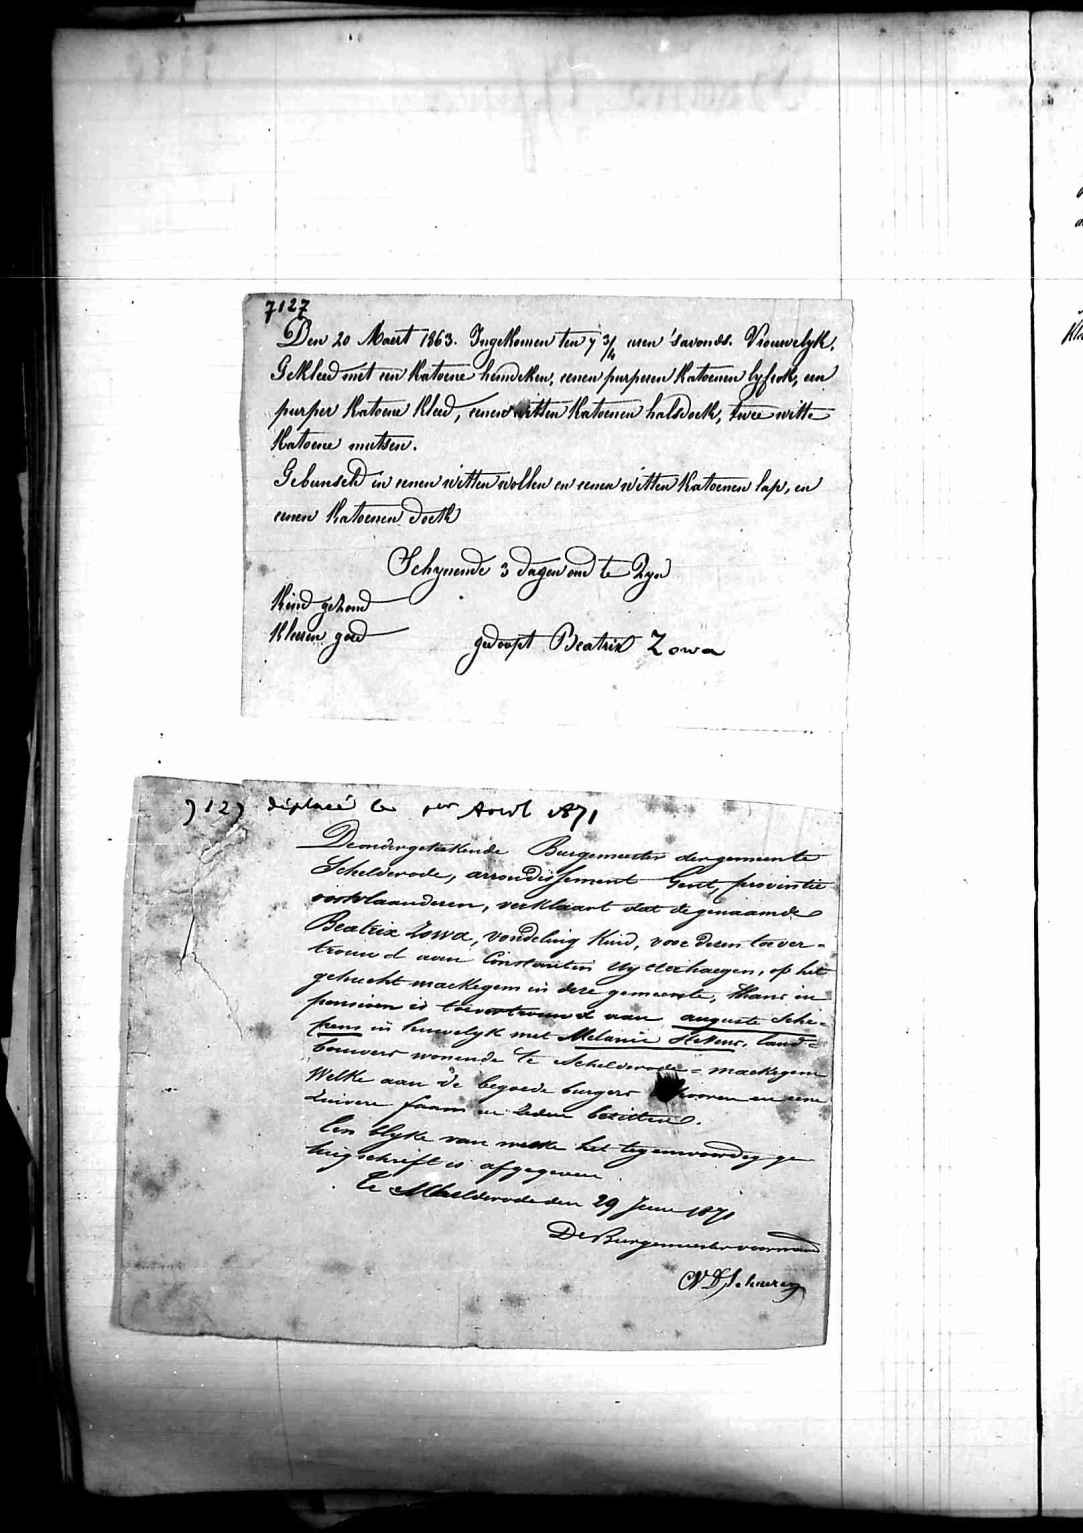 7127
Den 20 Maert 1863. Ingekomen ten 7 3/4 uren 's avonds. Vrouwelyk.
Gekleed met een katoene hemdeken, eenen purperen katoenen lyfrok, een
purper katoene kleed, eenen witten katoenen halsdoek, twee witte
katoene mutsen.
Gebunseld in eenen witten wollen en eenen witten katoenen lap, en
eenen katoenen doek
Schynende 3 dagen oud te zyn
Kind gezond
Kleeren goed
gedoopt Beatrix Zowa
7127 déplacé le 1er Avril 1871
De ondergeteekende Burgemeester der gemeente
Schelderode, arrondissement Gent, provintie
oostvlaanderen, verklaart dat de genaamde
Beatrix Zowa, vondeling kind, voor dezen toever-
trouwd aan Constantin Uytterhaegen, op het
gehucht mackegem in deze gemeente, thans in
pensioen is toevertrouwd aan auguste Sche-
pens in huwelyk met Melanie Stevens, land-
bouwers wonende te Schelderode-mackegem
Welke aan de begoede burgers hooren en eene
zuivere faam en zeden bezitten.
Ten blyke van welke het tegenwoordig ge
tuigschrift is afgegeven
Te Schelderode den 29 Juni 1871
De Burgemeester voornoemd